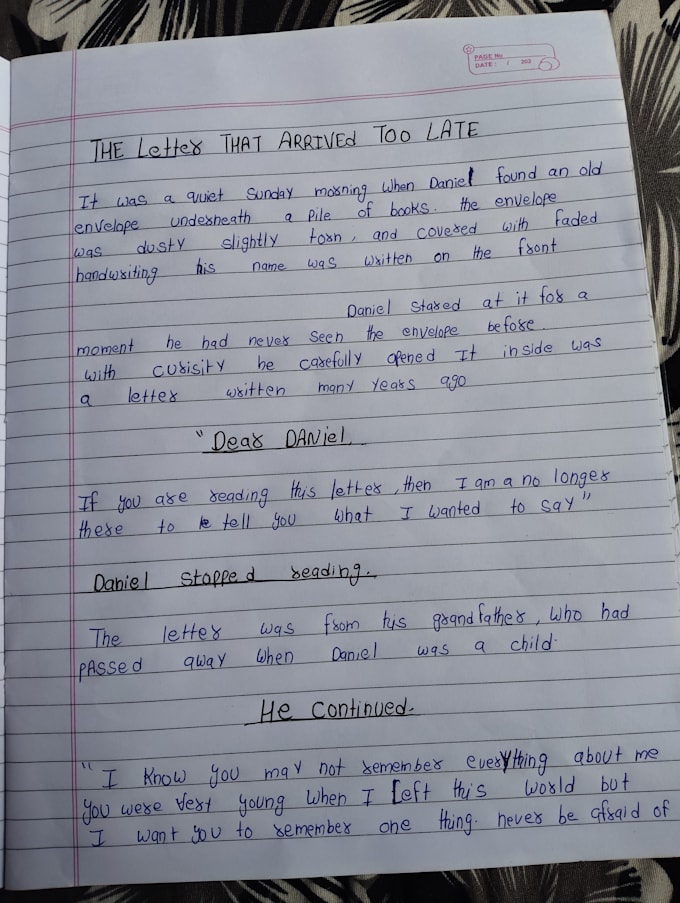 PAGE No
DATE: / 202
THE Letter THAT ARRIVEd TOO LATE
It was a quiet Sunday morning when Daniel found an old
envelope underneath a pile of books. the envelope
was dusty slightly torn, and covered with faded
handwriting his name was written on the front
Daniel stared at it for a
moment he had never seen the envelope before
with curisity he carefully opened It inside was
a letter written many years ago
"Dear DANiel,
If you are reading this letter, then I am a no longer
there to tell you what I wanted to say"
Daniel stopped reading.
The letter was from his grandfather, who had
pAssed away when Daniel was a child.
He continued.
"I Know you may not remember everything about me
you were very young when I Left this world but
I want you to remember one thing. never be afraid of